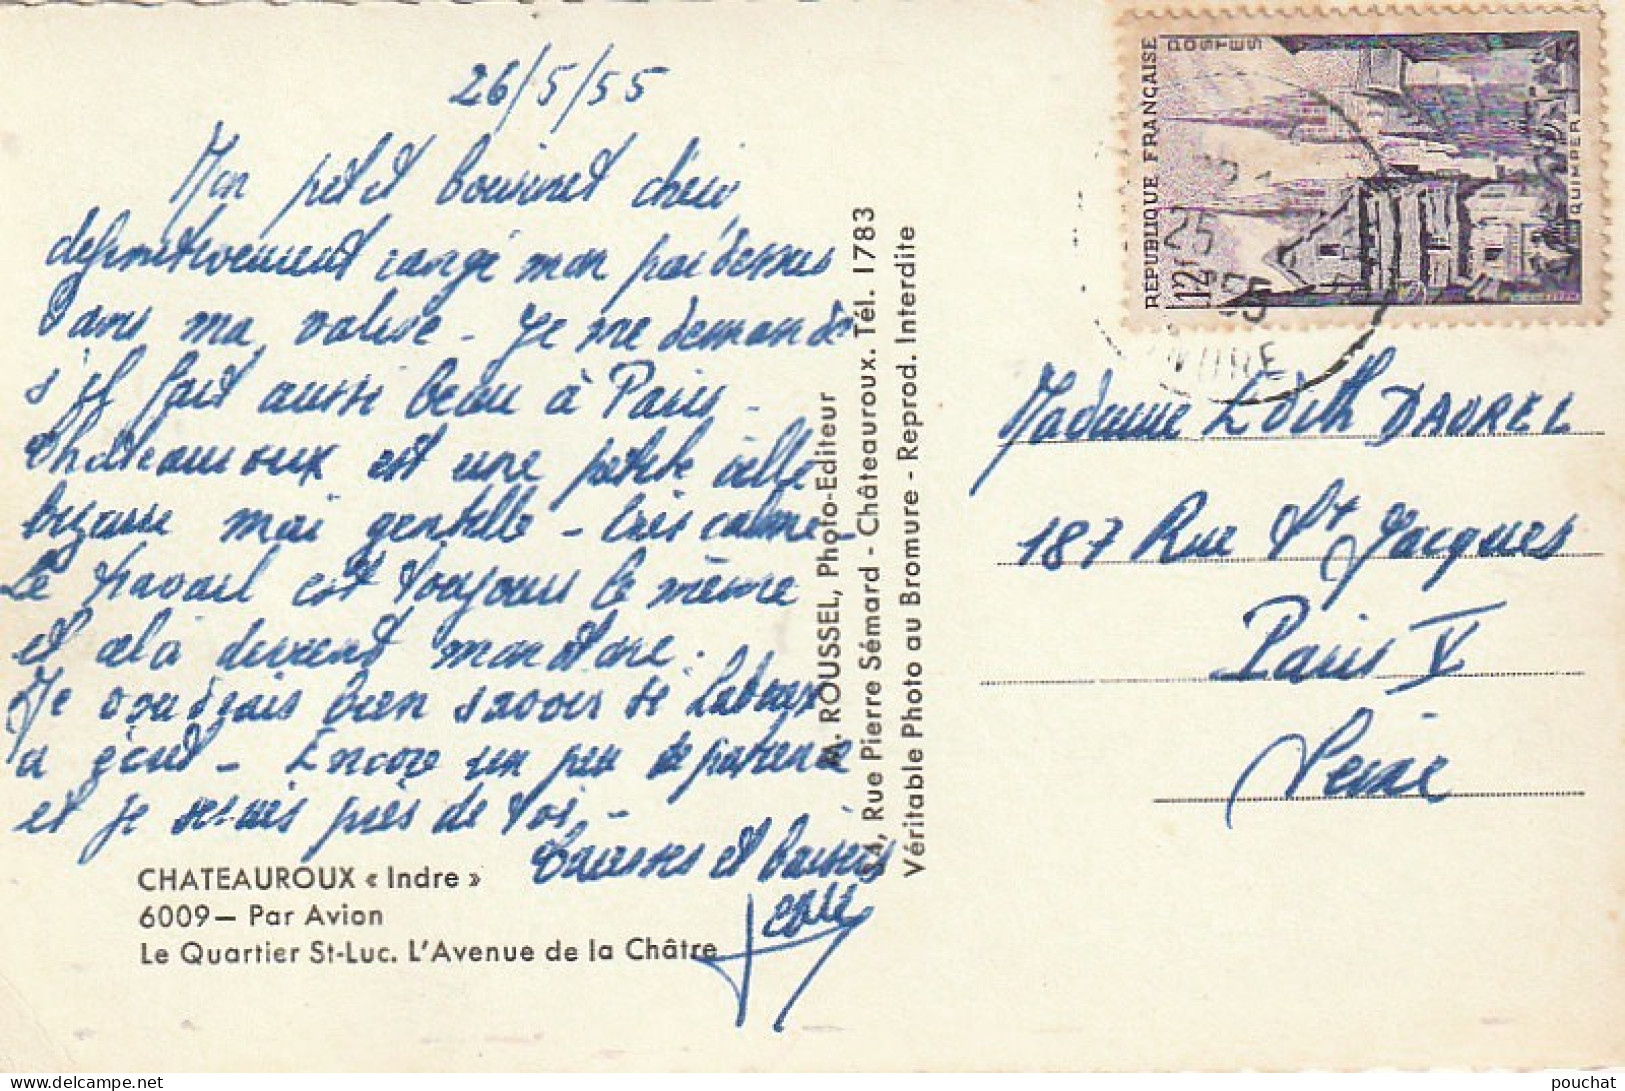 26/5/55
Mon petit chéri
definitivement rangé mon pardessus
dans ma valise - Je me demande
s'il fait aussi beau à Paris -
Chateauroux est une petite ville
bizarre mai gentille - très calme -
Le travail est toujours le même
et celà devient monotone.
Je voudrais bien savoir si
a écrit - Encore un peu de patience
et je serais près de toi -
Caresses et baisers
Jean
CHATEAUROUX « Indre »
6009 – Par Avion
Le Quartier St-Luc. L'Avenue de la Châtre
M. ROUSSEL, Photo-Editeur
34, Rue Pierre Sémard - Châteauroux. Tél. 1783
Véritable Photo au Bromure - Reprod. Interdite
REPUBLIQUE FRANÇAISE
POSTES
12f
QUIMPER
25
55
INDRE
Madame Edith DAUREL
187 Rue St Jacques
Paris V
Seine
pouchat